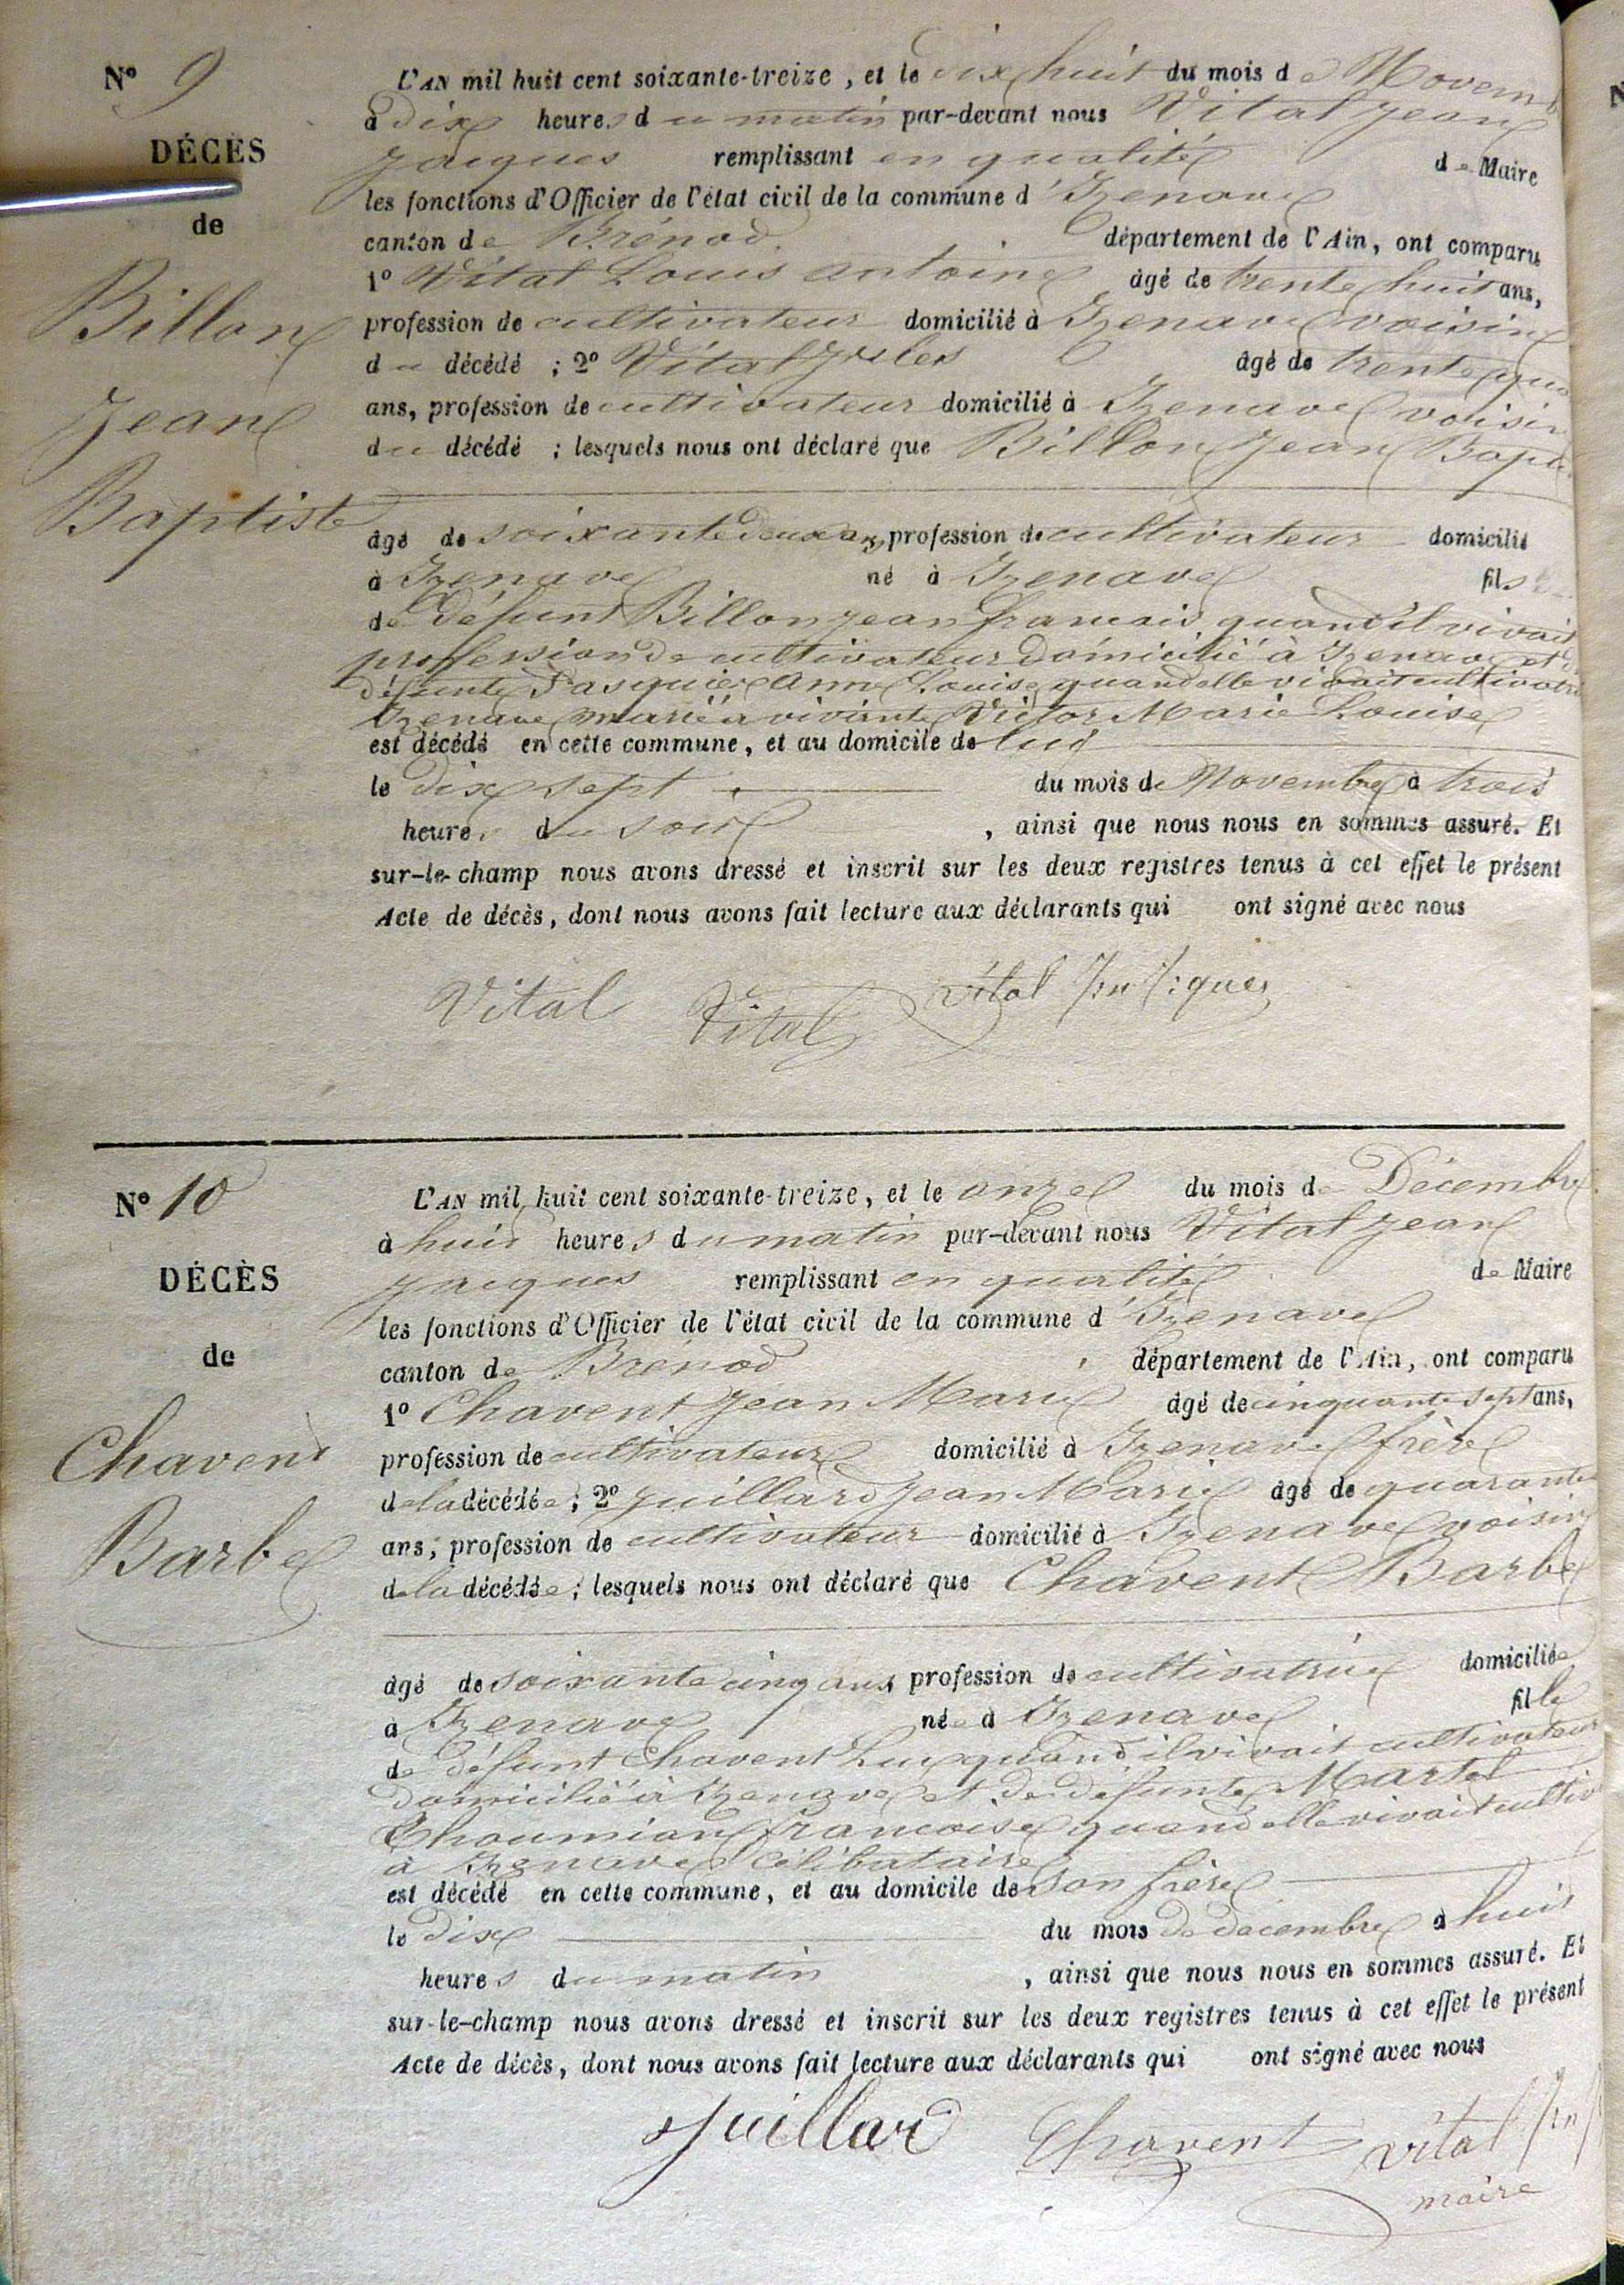 N° 9
DÉCÈS
de
Billon
Jean
Baptiste
L'AN mil huit cent soixante-treize, et le dix huit du mois de Novemb
à dix heures du matin par-devant nous Vital Jean
Jacques remplissant en qualité de Maire
les fonctions d'Officier de l'état civil de la commune d'Izenave
canton de Brénod département de l'Ain, ont comparu
1° Vital Louis antoine âgé de trente huit ans,
profession de cultivateur domicilié à Izenave voisin
du décédé ; 2° Vital Jules âgé de trente qua
ans, profession de cultivateur domicilié à Izenave voisin
du décédé ; lesquels nous ont déclaré que Billon Jean Bapt
âgé de soixante deux ans, profession de cultivateur domicilié
à Izenave né à Izenave fils
de défunt Billon jean francais quand il vivait
profession de cultivateur domicilié à Izenave et de
défunte Pasquier Anne Louise quand elle vivait cultivatri
Izenave marié à vivante Marie Louise
est décédé en cette commune, et au domicile de lui
le dix sept du mois de Novembre à trois
heures du soir, ainsi que nous nous en sommes assuré. Et
sur-le-champ nous avons dressé et inscrit sur les deux registres tenus à cet effet le présent
Acte de décès, dont nous avons fait lecture aux déclarants qui ont signé avec nous
Vital Vital Vital
N° 10
DÉCÈS
de
Chavent
Barbe
L'AN mil huit cent soixante-treize, et le onze du mois de Décembre
à huit heures du matin par-devant nous Vital jean
jacques remplissant en qualité de Maire
les fonctions d'Officier de l'état civil de la commune d'Izenave
canton de Brénod, département de l'Ain, ont comparu
1° Chavent Jean Marie âgé de cinquante sept ans,
profession de cultivateur domicilié à Izenave frère
de la décédée ; 2° juillard Jean Marie âgé de quarante
ans, profession de cultivateur domicilié à Izenave voisin
de la décédée ; lesquels nous ont déclaré que Chavent Barbe
âgé de soixante cinq ans, profession de cultivatrice domiciliée
à Izenave née à Izenave fille
de défunt Chavent Luc quand il vivait cultivateur
domicilié à Izenave et de défunte Martel
françoise quand elle vivait cultiv
à Izenave célibataire
est décédé en cette commune, et au domicile de son frère
le dix du mois de decembre à huit
heures du matin, ainsi que nous nous en sommes assuré. Et
sur-le-champ nous avons dressé et inscrit sur les deux registres tenus à cet effet le présent
Acte de décès, dont nous avons fait lecture aux déclarants qui ont signé avec nous
juillard Chavent Vital
maire